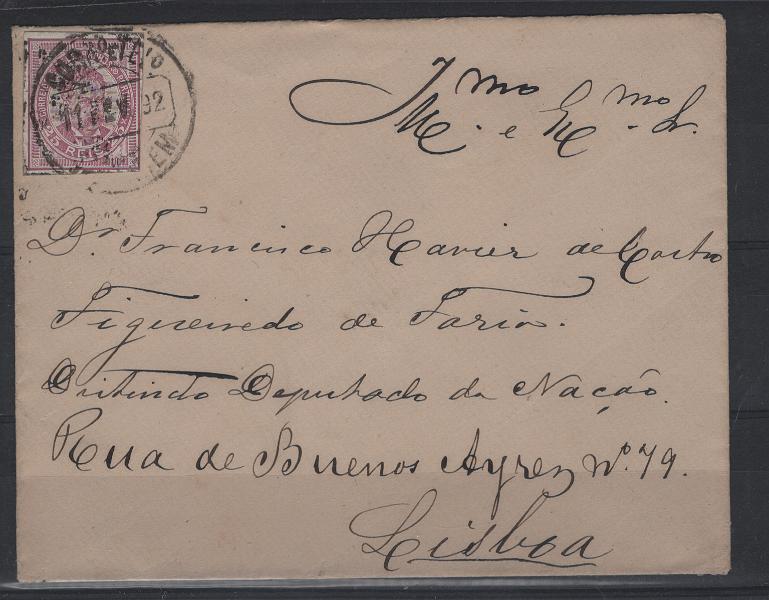 CORREIO E TELEGRAPHO
11 FEV 92
25 REIS
Illmo
e Exmo Sr.
Dr. Francisco Xavier de Castro
Figueiredo de Faria.
Distincto Deputado da Nação.
Rua de Buenos Ayres nº. 79.
Lisboa